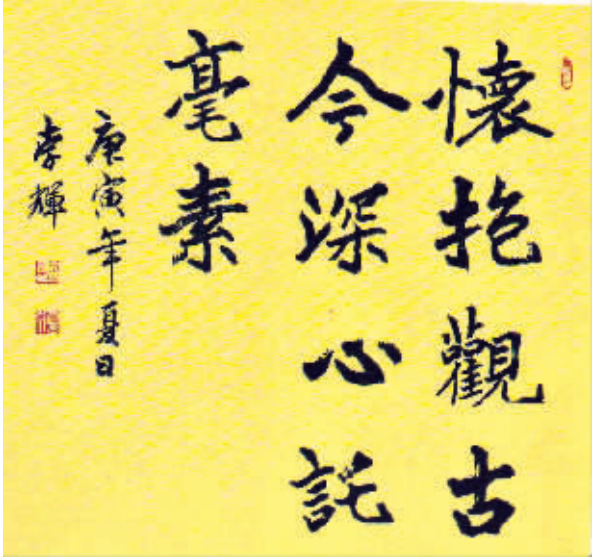 懷抱觀古
今深心託
毫素
庚寅年夏日
李輝